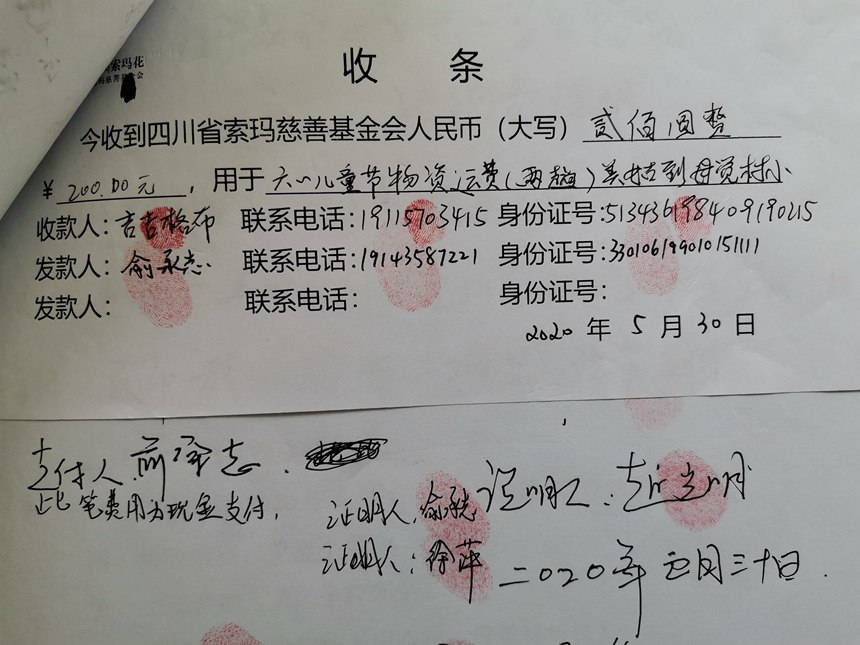 索玛花
慈善基金会
收 条
今收到四川省索玛慈善基金会人民币（大写）贰佰圆整
￥200.00元，用于六一儿童节物资运费（两趟）美姑到母觉村小
收款人：吉吉格布 联系电话：19115703415 身份证号：513436198409190215
发款人：俞承志 联系电话：19143587221 身份证号：330106199010151111
发款人： 联系电话： 身份证号：
2020 年 5 月 30 日
支付人 俞承志．
此笔费用为现金支付．
证明人．俞 证明人：
证明人：徐萍 二〇二〇年五月三十日．